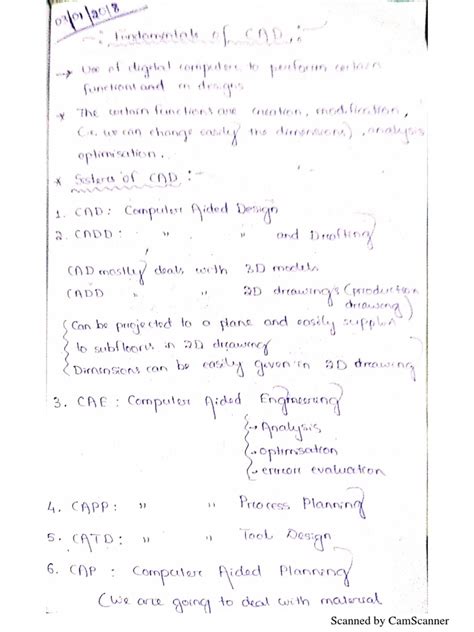 03/01/2018
-: Fundamentals of CAD :-
→ Use of digital computers to perform certain
functions and in designs
* The certain functions are creation, modification,
(i.e. we can change easily the dimensions), analysis
optimisation.
* Sisters of CAD :-
1. CAD: Computer Aided Design
2. CADD: " " and Drafting
CAD mostly deals with 3D models
CADD " " 2D drawings (production
drawing)
Can be projected to a plane and easily
to subfloors in 2D drawing
Dimensions can be easily given in 2D drawing
3. CAE: Computer Aided Engineering
→ Analysis
→ optimisation
→ error evaluation
4. CAPP: " " Process Planning
5. CATD: " " Tool Design
6. CAP: Computer Aided Planning
(We are going to deal with material
Scanned by CamScanner